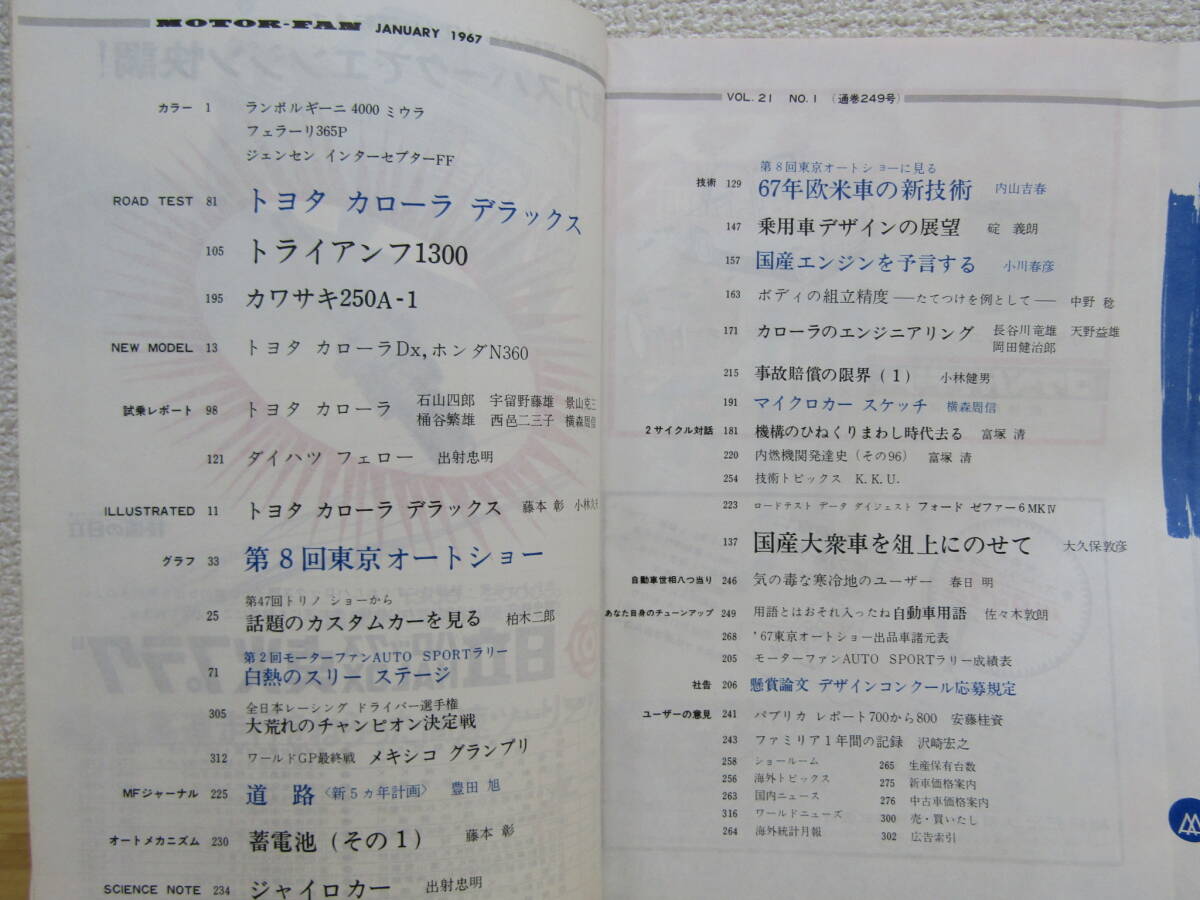 MOTOR-FAN JANUARY 1967
カラー 1 ランボルギーニ 4000 ミウラ
フェラーリ365P
ジェンセン インターセプターFF
ROAD TEST 81 トヨタ カローラ デラックス
105 トライアンフ1300
195 カワサキ250A-1
NEW MODEL 13 トヨタ カローラDx, ホンダN360
試乗レポート 98 トヨタ カローラ 石山四郎 宇留野藤雄 景山克三
桶谷繁雄 西邑二三子 横森周信
121 ダイハツ フェロー 出射忠明
ILLUSTRATED 11 トヨタ カローラ デラックス 藤本 彰 小林
グラフ 33 第8回東京オートショー
第47回トリノ ショーから
25 話題のカスタムカーを見る 柏木二郎
第2回モーターファンAUTO SPORTラリー
71 白熱のスリー ステージ
全日本レーシング ドライバー選手権
305 大荒れのチャンピオン決定戦
312 ワールドGP最終戦 メキシコ グランプリ
MFジャーナル 225 道 路〈新5ヵ年計画〉 豊田 旭
オートメカニズム 230 蓄電池（その1） 藤本 彰
SCIENCE NOTE 234 ジャイロカー 出射忠明
VOL. 21 NO. 1 （通巻249号）
第8回東京オートショーに見る
技術 129 67年欧米車の新技術 内山吉春
147 乗用車デザインの展望 碇 義朗
157 国産エンジンを予言する 小川春彦
163 ボディの組立精度 ―たてつけを例として― 中野 稔
171 カローラのエンジニアリング 長谷川竜雄 天野益雄
岡田健治郎
215 事故賠償の限界（1） 小林健男
191 マイクロカー スケッチ 横森周信
2サイクル対話 181 機構のひねくりまわし時代去る 富塚 清
220 内燃機関発達史（その96） 富塚 清
254 技術トピックス K. K. U.
223 ロードテスト データ ダイジェスト フォード ゼファー6 MKⅣ
137 国産大衆車を俎上にのせて 大久保敦彦
自動車世相八つ当り 246 気の毒な寒冷地のユーザー 春日 明
あなた自身のチューンアップ 249 用語とはおそれ入ったね自動車用語 佐々木敦朗
268 '67東京オートショー出品車諸元表
205 モーターファンAUTO SPORTラリー成績表
社告 206 懸賞論文 デザインコンクール応募規定
ユーザーの意見 241 パブリカ レポート700から800 安藤桂資
243 ファミリア1年間の記録 沢崎宏之
258 ショールーム 265 生産保有台数
256 海外トピックス 275 新車価格案内
263 国内ニュース 276 中古車価格案内
316 ワールドニューズ 300 売・買いたし
264 海外統計月報 302 広告索引